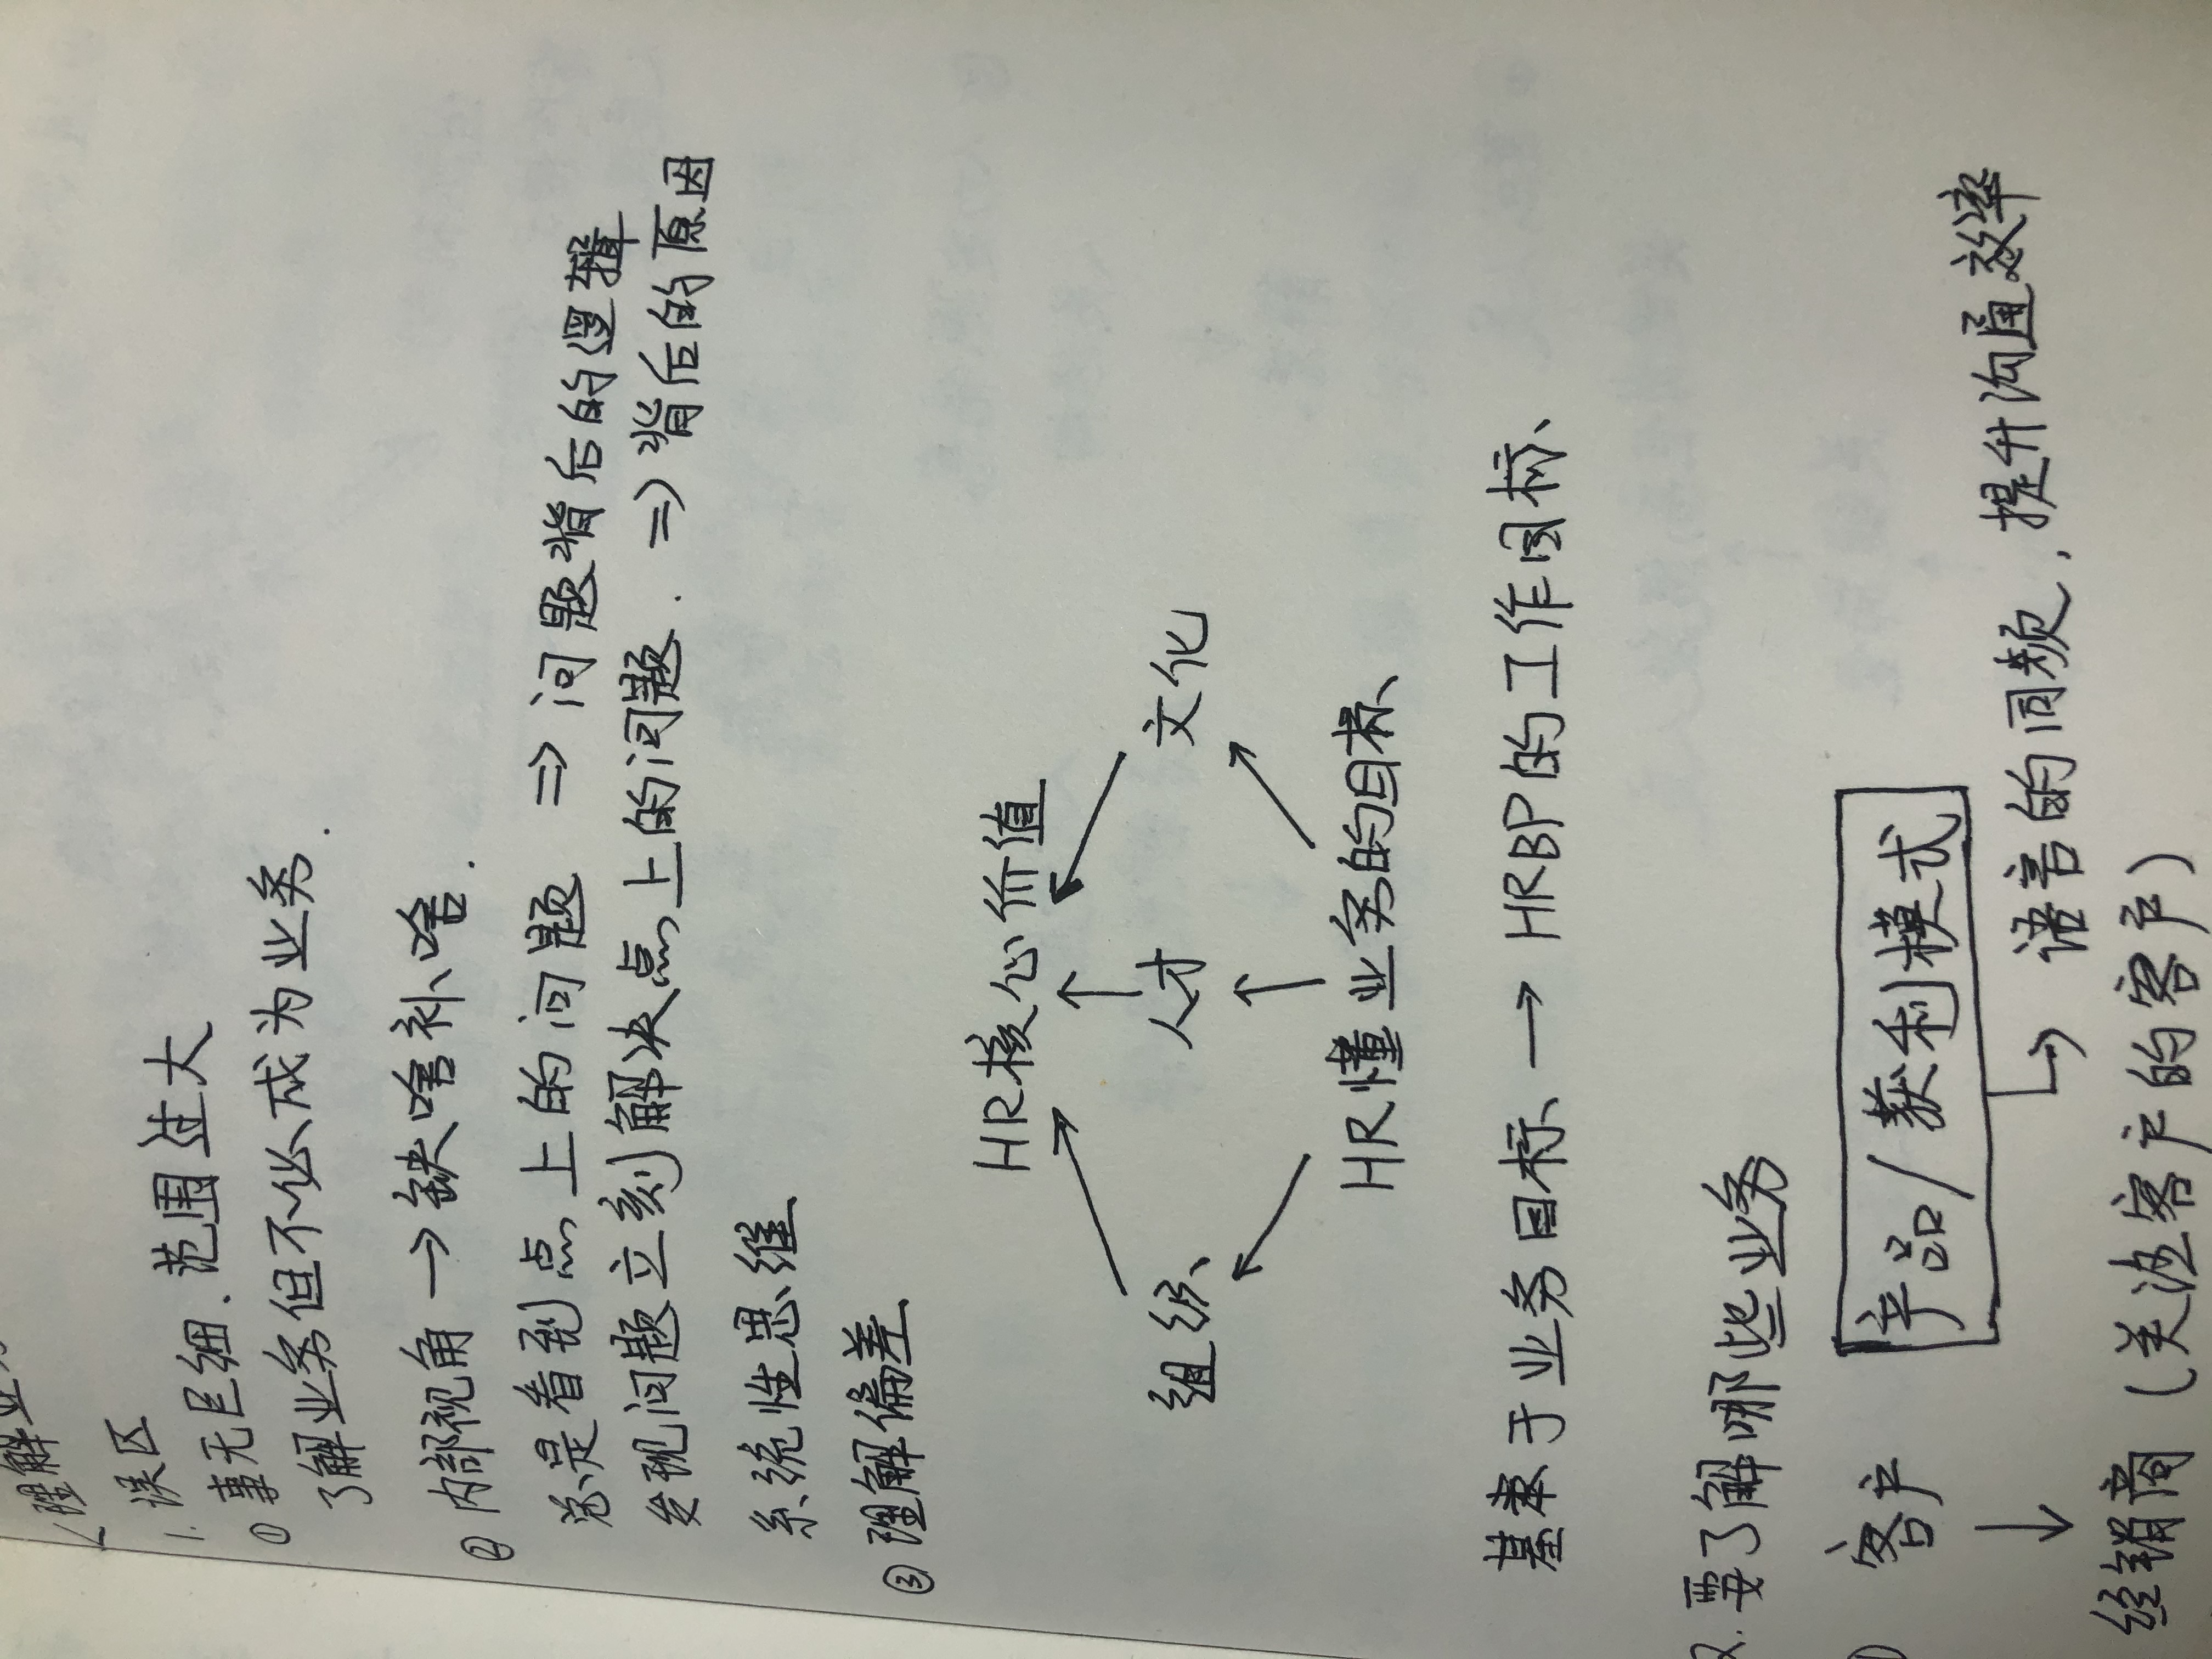 理解业务
1. 误区
① 事无巨细. 范围过大
了解业务但不必成为业务.
② 内部视角 → 缺啥补啥.
总是看到点上的问题 ⇒ 问题背后的逻辑
发现问题立刻解决点上的问题. ⇒ 背后的原因
系统性思维
③ 理解偏差
HR核心价值
组织 人才 文化
HR懂业务的目标
基于业务目标 → HRBP的工作目标
2. 要了解哪些业务
客户 产品/获利模式
↳ 语言的同频, 提升沟通效率
↓
经销商 (关注客户的客户)